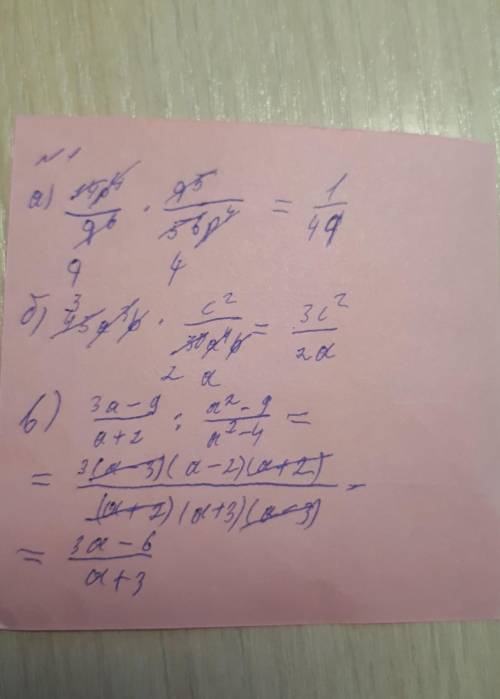 №1
а) 14p⁴/q⁶ · q⁵/56p⁴ = 1/4q
q 4
б) 45a³b · c²/30a⁴b = 3c²/2a
3 2 a
в) 3a-9/a+2 : a²-9/a²-4 =
= 3(a-3)(a-2)(a+2)/(a+2)(a+3)(a-3) =
= 3a-6/a+3